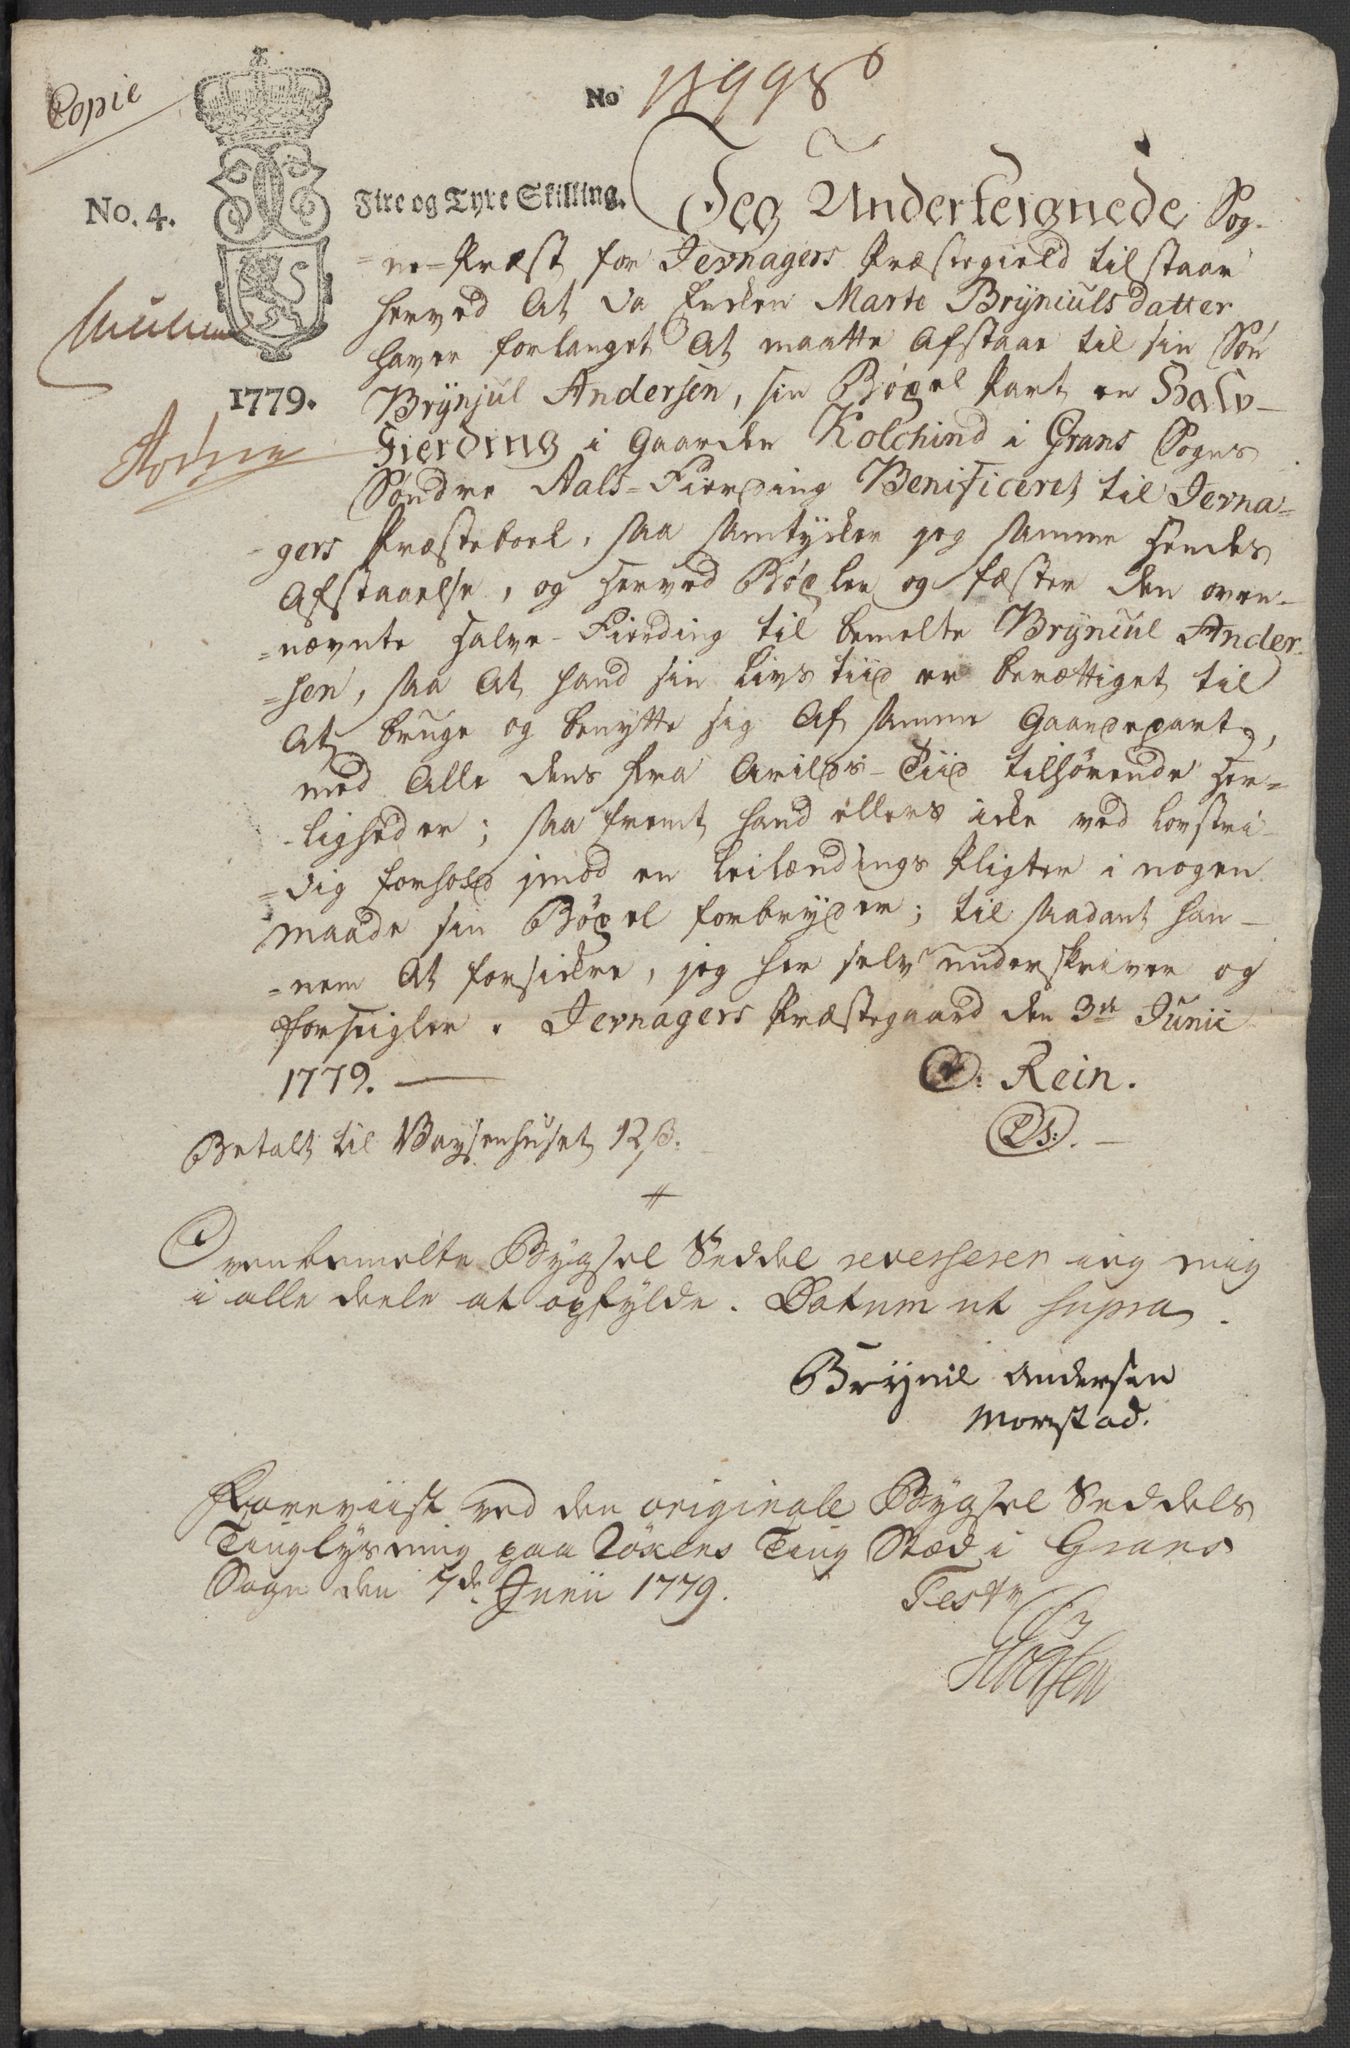 Copie
No 15998
No. 4.
Fire og Tyve Skilling.
1779.
Jeg Underteignede Sog-
=ne-Præst for Jevnagers Præstegield tilstaar
herved at da Enken Marte Brÿniuls datter
haver forlanget at maatte afstaae til sin Søn
Brÿnjul Andersen, sin Bøxel Part en Halv-
Fierding i Gaarden Kolchind i Grans Sogns
Søndre Aals-Fierding Benificeret til Jevna=
gers Præsteboel, saa samtÿcker jeg samme hendes
Afstaaelse, og herved Bøxler og fæster den oven-
=nævnte halve-Fierding til bemelte Brÿniul Ander-
=sen, saa at hand sin Livs tiid er berættiget til
at bruge og benytte sig af samme Gaardepart,
med alle dens fra Arilds-Tiid tilhørende Her=
-ligheder; saa fremt hand ellers icke ved lovstri-
=dig forhold jmod en Leilændings Pligter i nogen
maade sin Bøxel forbrÿder; til saadant han-
=nem at forsickre, jeg her selv underskriver og
forseigler. Jevnagers Præstegaard den 3de Junii
1779.
Rein.
(LS.)
Betalt til Vaysenhuset 12 s.
Ovenbemelte Bÿgsel Seddel reverserer ieg mig
i alle deele at opfylde. Datum ut supra.
Brÿnil Andersen
Morstad.
Foreviist ved den originale Bÿgsel Seddels
Tinglysning paa Røxens Ting Stæd i Grans
Sogn den 7de Junii 1779.
Test